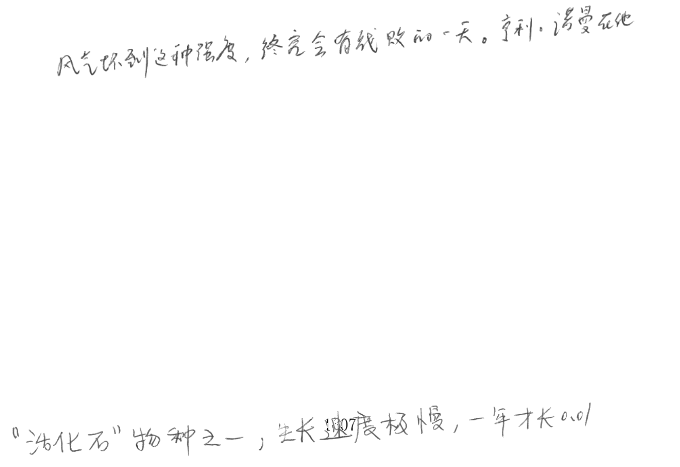 风气坏到这种强度，终究会有线败的一天。亨利．诺曼在他
“活化石”物种之一，生长速度极慢，一年才长0.01